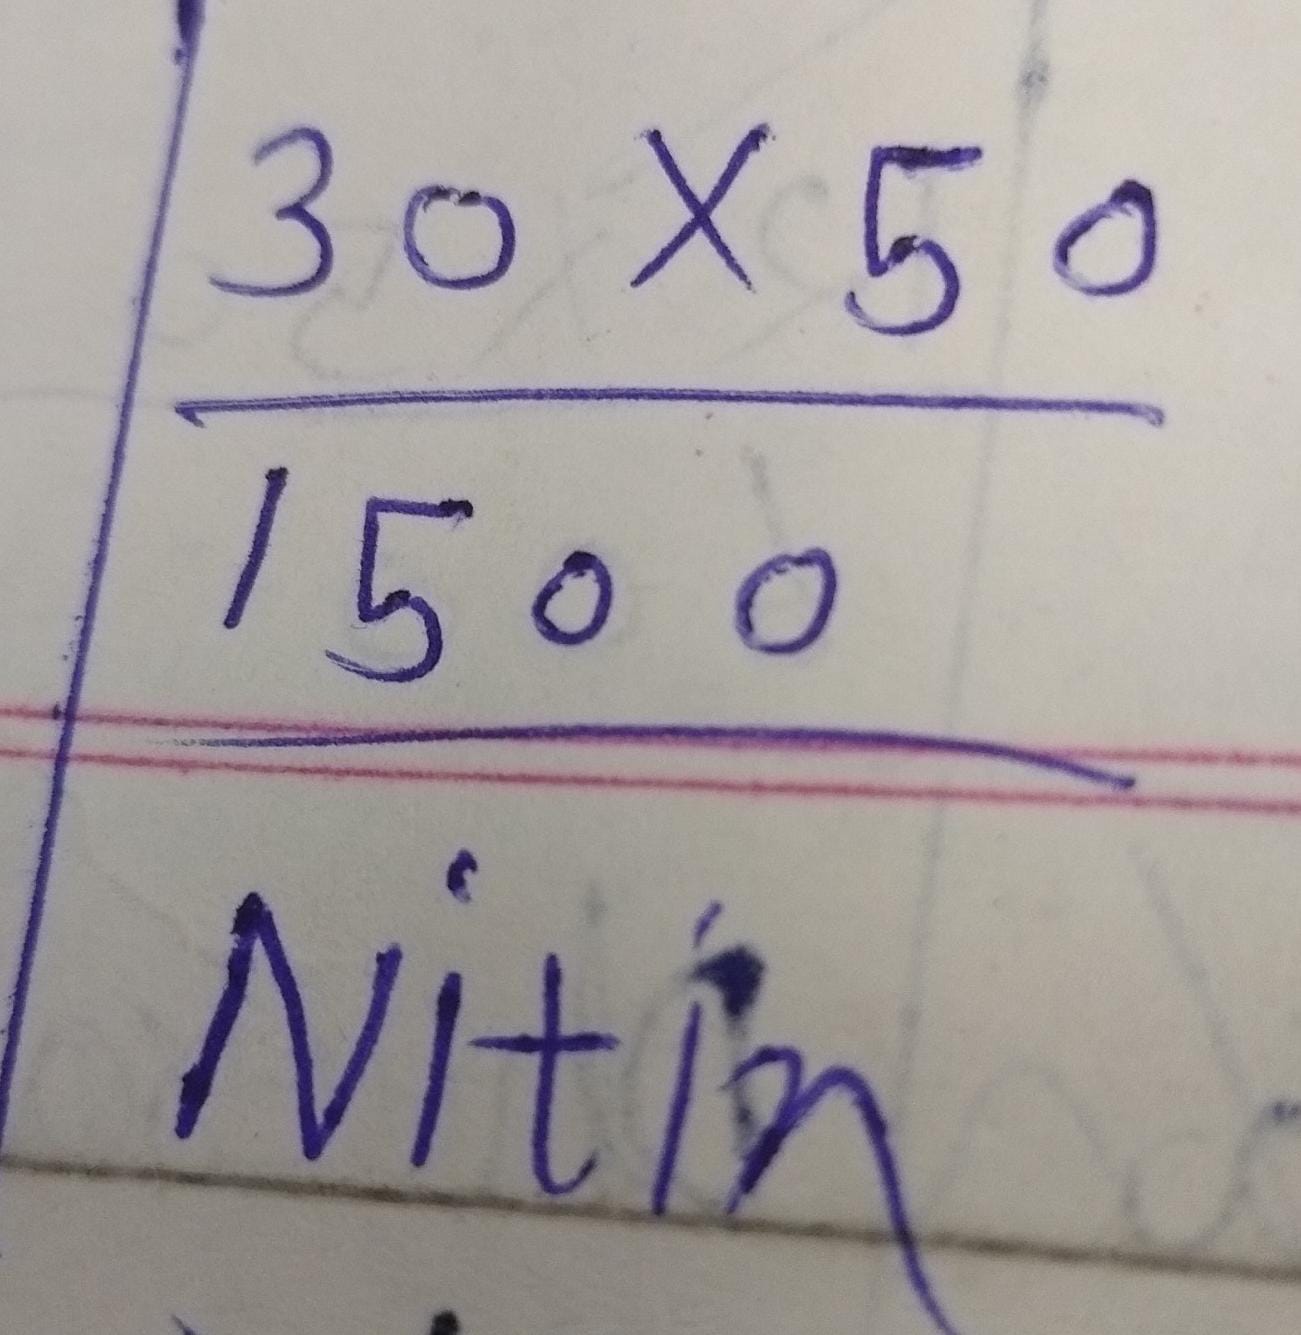 30 X 50
1500
Nitin